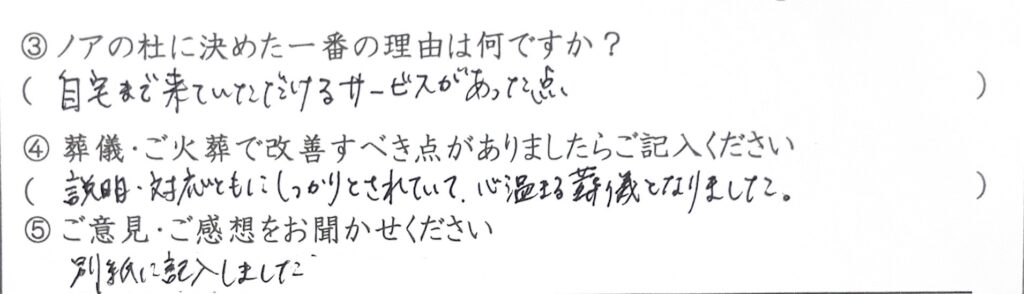 ③ ノアの杜に決めた一番の理由は何ですか？
( 自宅まで来ていただけるサービスがあった点 )
④ 葬儀・ご火葬で改善すべき点がありましたらご記入ください
( 説明・対応ともにしっかりとされていて、心温まる葬儀となりました。 )
⑤ ご意見・ご感想をお聞かせください
別紙に記入しました